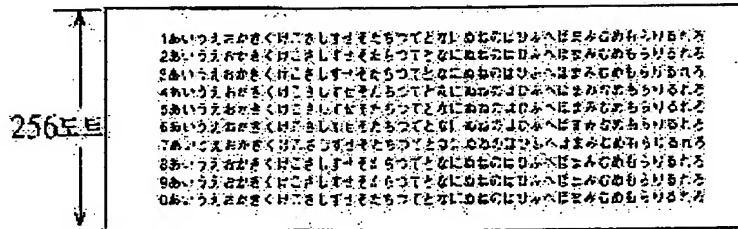 256도트
1あいうえおかきくけこさしすせそたちつてとなにぬねのはひふへほまみむめもらりるれろ
2あいうえおかきくけこさしすせそたちつてとなにぬねのはひふへほまみむめもらりるれろ
3あいうえおかきくけこさしすせそたちつてとなにぬねのはひふへほまみむめもらりるれろ
4あいうえおかきくけこさしすせそたちつてとなにぬねのはひふへほまみむめもらりるれろ
5あいうえおかきくけこさしすせそたちつてとなにぬねのはひふへほまみむめもらりるれろ
6あいうえおかきくけこさしすせそたちつてとなにぬねのはひふへほまみむめもらりるれろ
7あいうえおかきくけこさしすせそたちつてとなにぬねのはひふへほまみむめもらりるれろ
8あいうえおかきくけこさしすせそたちつてとなにぬねのはひふへほまみむめもらりるれろ
9あいうえおかきくけこさしすせそたちつてとなにぬねのはひふへほまみむめもらりるれろ
0あいうえおかきくけこさしすせそたちつてとなにぬねのはひふへほまみむめもらりるれろ